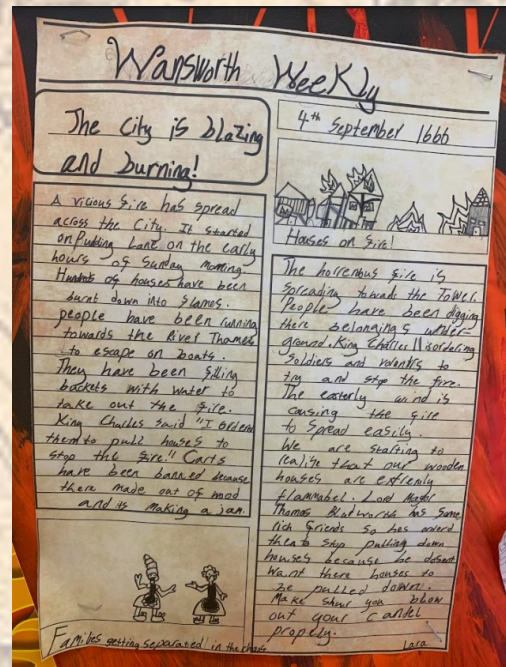 Wansworth Weekly
The City is blazing
and burning!
A vicious fire has spread
across the City. It started
on Pudding Lane on the early
hours of Sunday morning.
of houses have been
burnt down into flames.
people have been running
towards the River Thames
to escape on boats.
They have been filling
backets with water to
take out the fire.
King Charles said "I
them to pull houses to
stop the fire." Carts
have been banned because
there made out of wood
and its making a jam.
Families getting separated in the
4th September 1666
Houses on fire!
The horrenbus fire is
spreading towards the Tower.
People have been digging
there belongings under-
ground. King Charles II is ordering
Soldiers and to
try and stop the fire.
The easterly wind is
causing the fire
to spread easily.
We are starting to
realise that our wooden
houses are
flammabel. Lord Mayor
Thomas has some
rich friends so hes
them to stop pulling down
houses because he
want there houses to
be pulled down.
Make shur you blow
out your candel
propely.
Lara